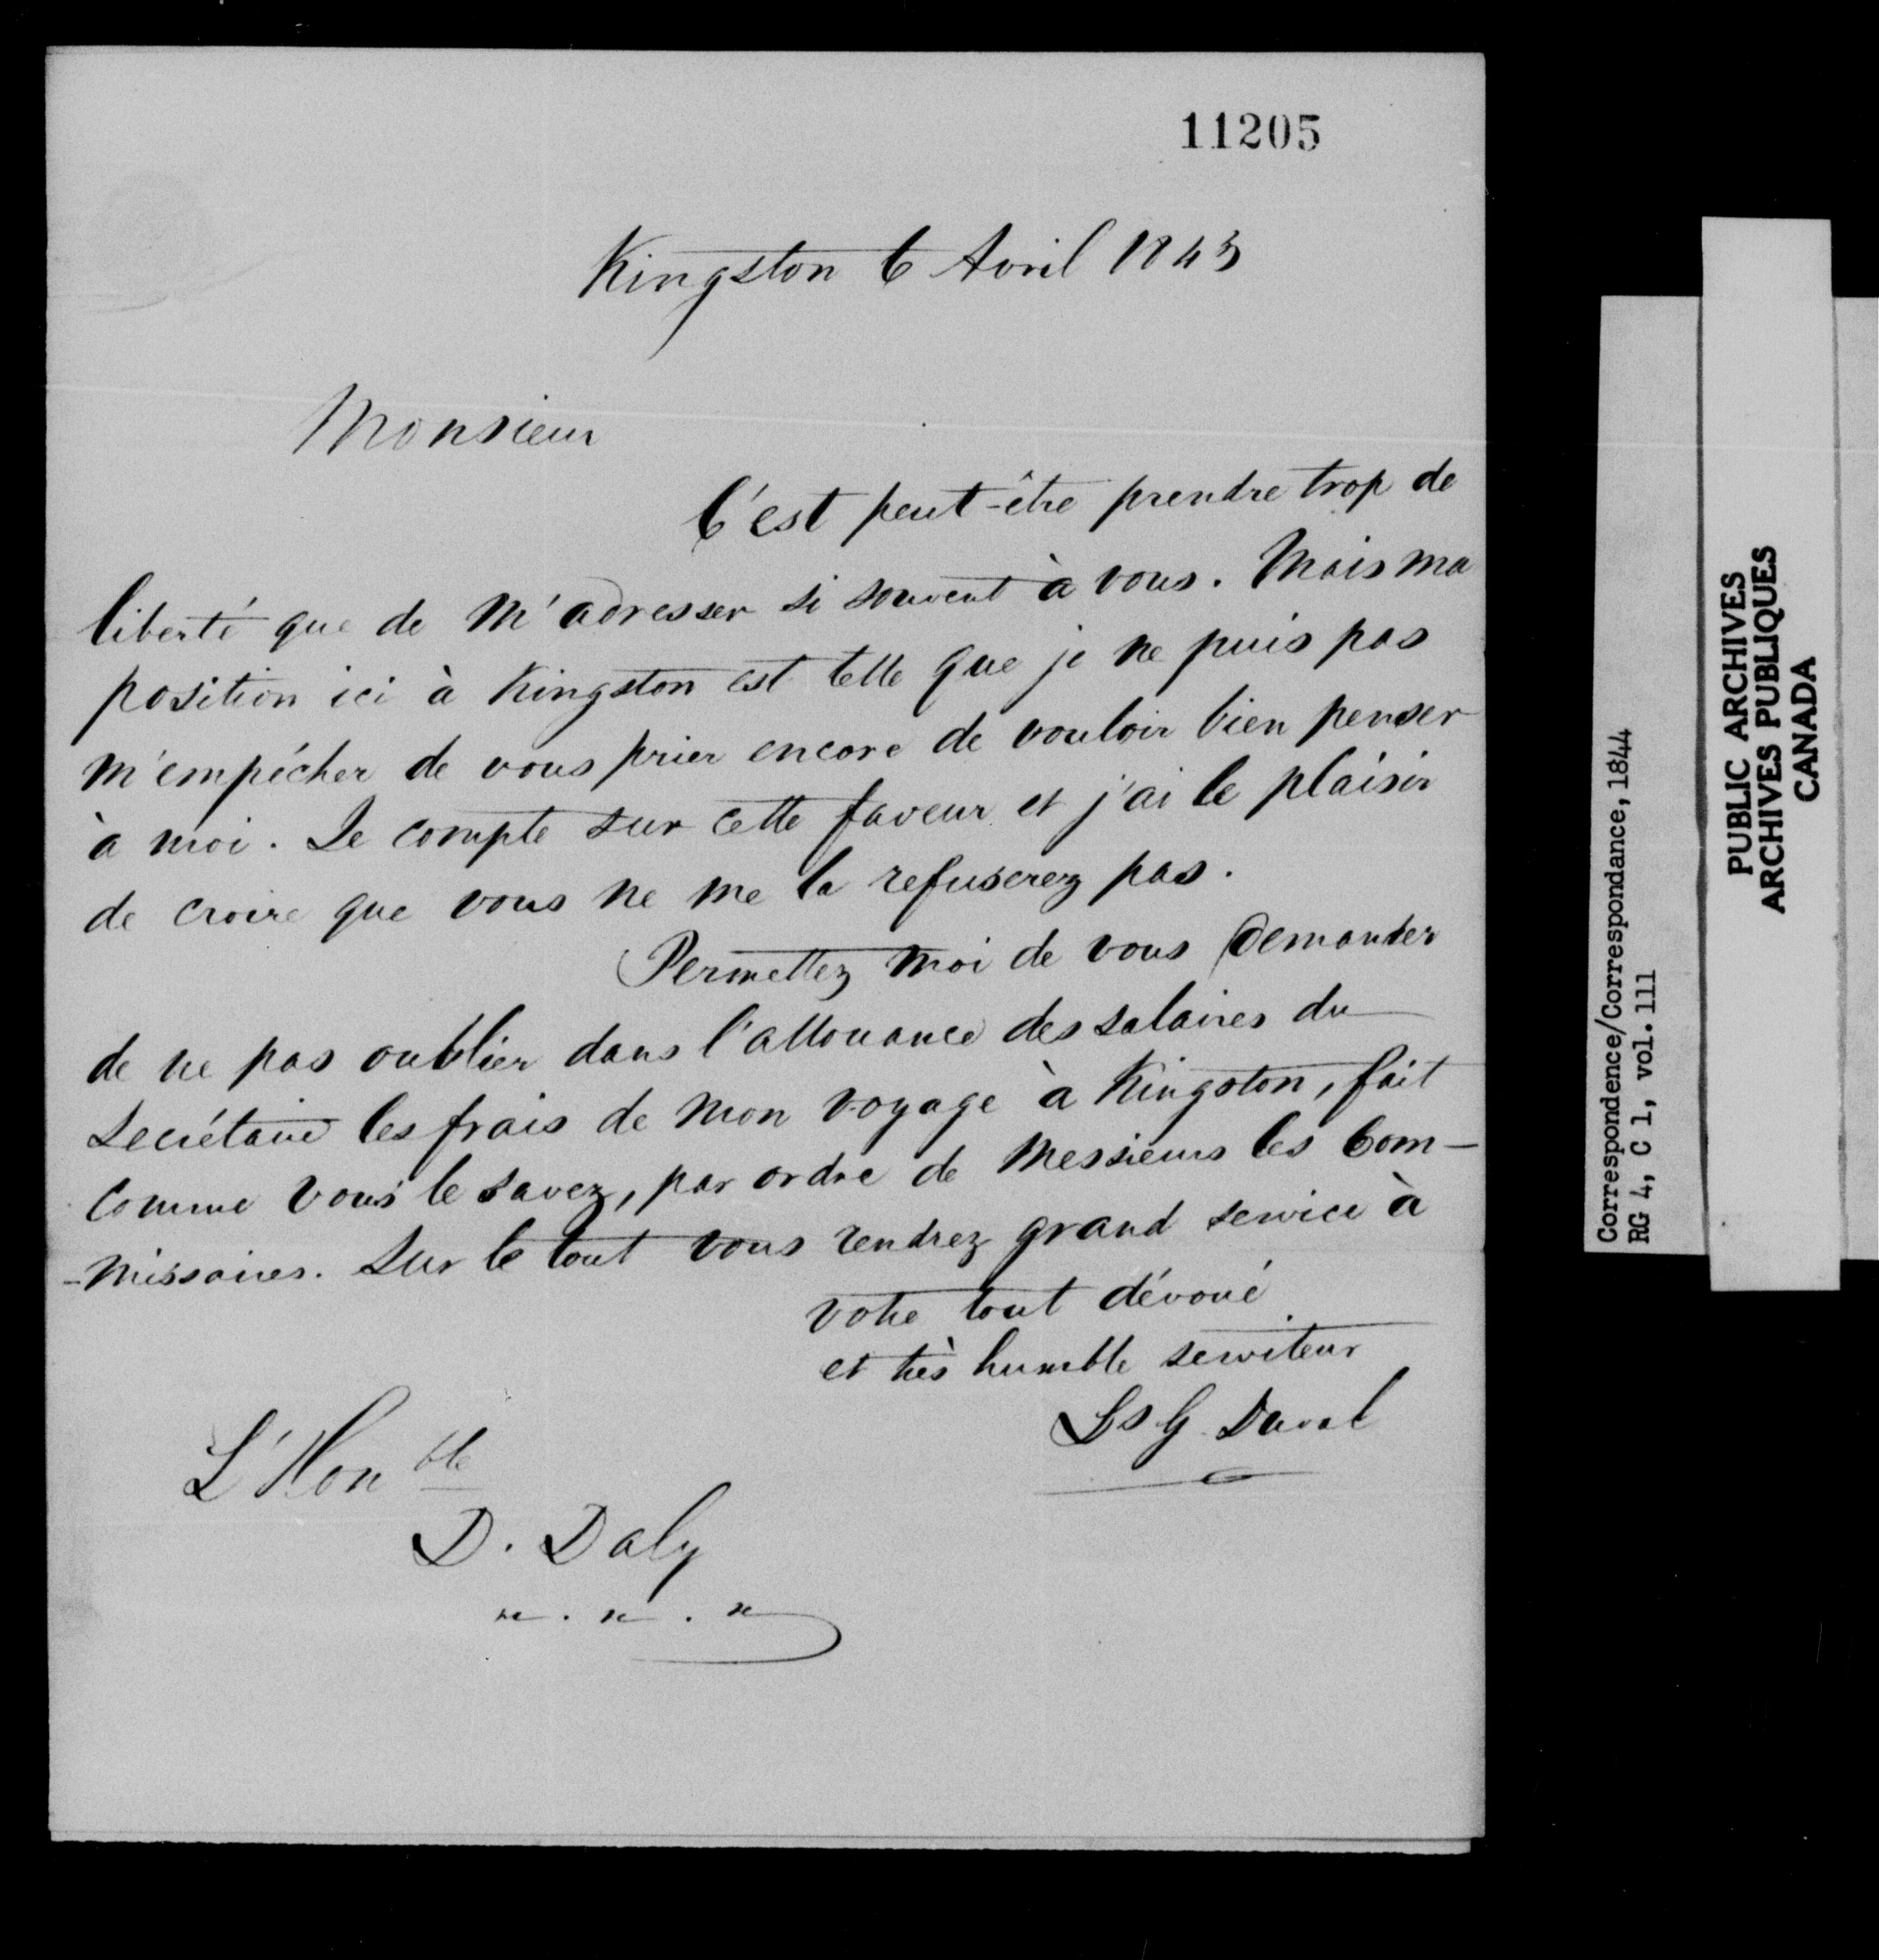 11205
Kingston 6 Avril 1843
Monsieur
C'est peut-être prendre trop de
liberté que de m'adresser si souvent à vous. Mais ma
position ici à Kingston est telle que je ne puis pas
m'empêcher de vous prier encore de vouloir bien penser
à moi. Je compte sur cette faveur et j'ai le plaisir
de croire que vous ne me la refuserez pas.
Permettez moi de vous demander
de ne pas oublier dans l'allouance des salaires du
Secrétaire les frais de mon voyage à Kingston, fait
comme vous le savez, par ordre de Messieurs les Com-
-missaires. Sur le tout vous rendrez grand service à
votre tout dévoué
et très humble serviteur
Ls G Duval
L'Honble
D. Daly
Correspondence/Correspondance, 1844
RG 4, C 1, vol. 111
PUBLIC ARCHIVES
ARCHIVES PUBLIQUES
CANADA